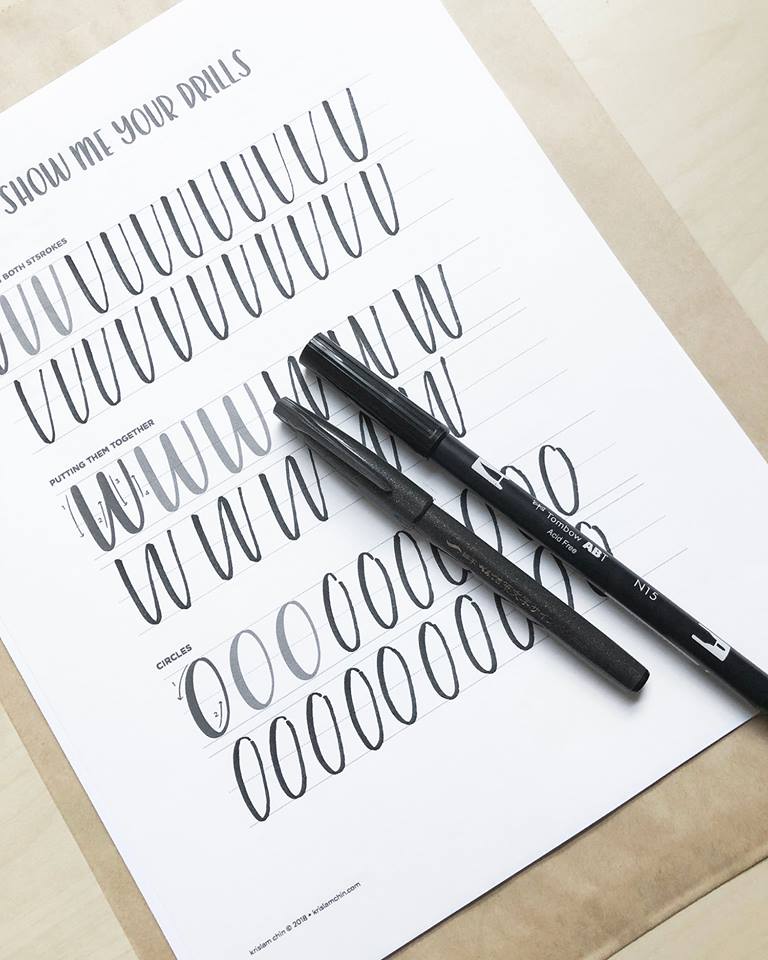 SHOW ME YOUR DRILLS
BOTH STSROKES
PUTTING THEM TOGETHER
1 2 3 4
CIRCLES
1
2
Tombow ABT
Acid Free
N15
krislam chin © 2018 • krislamchin.com